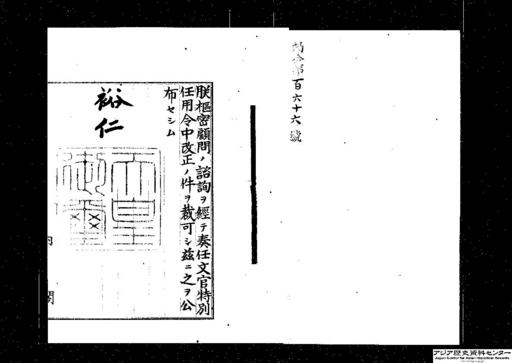 勅令第百六十六號
朕樞密顧問ノ諮詢ヲ經テ奏任文官特別
任用令中改正ノ件ヲ裁可シ茲ニ之ヲ公
布セシム
裕仁
天皇
御璽
内
閣
アジア歴史資料センター
Japan Center for Asian Historical Records